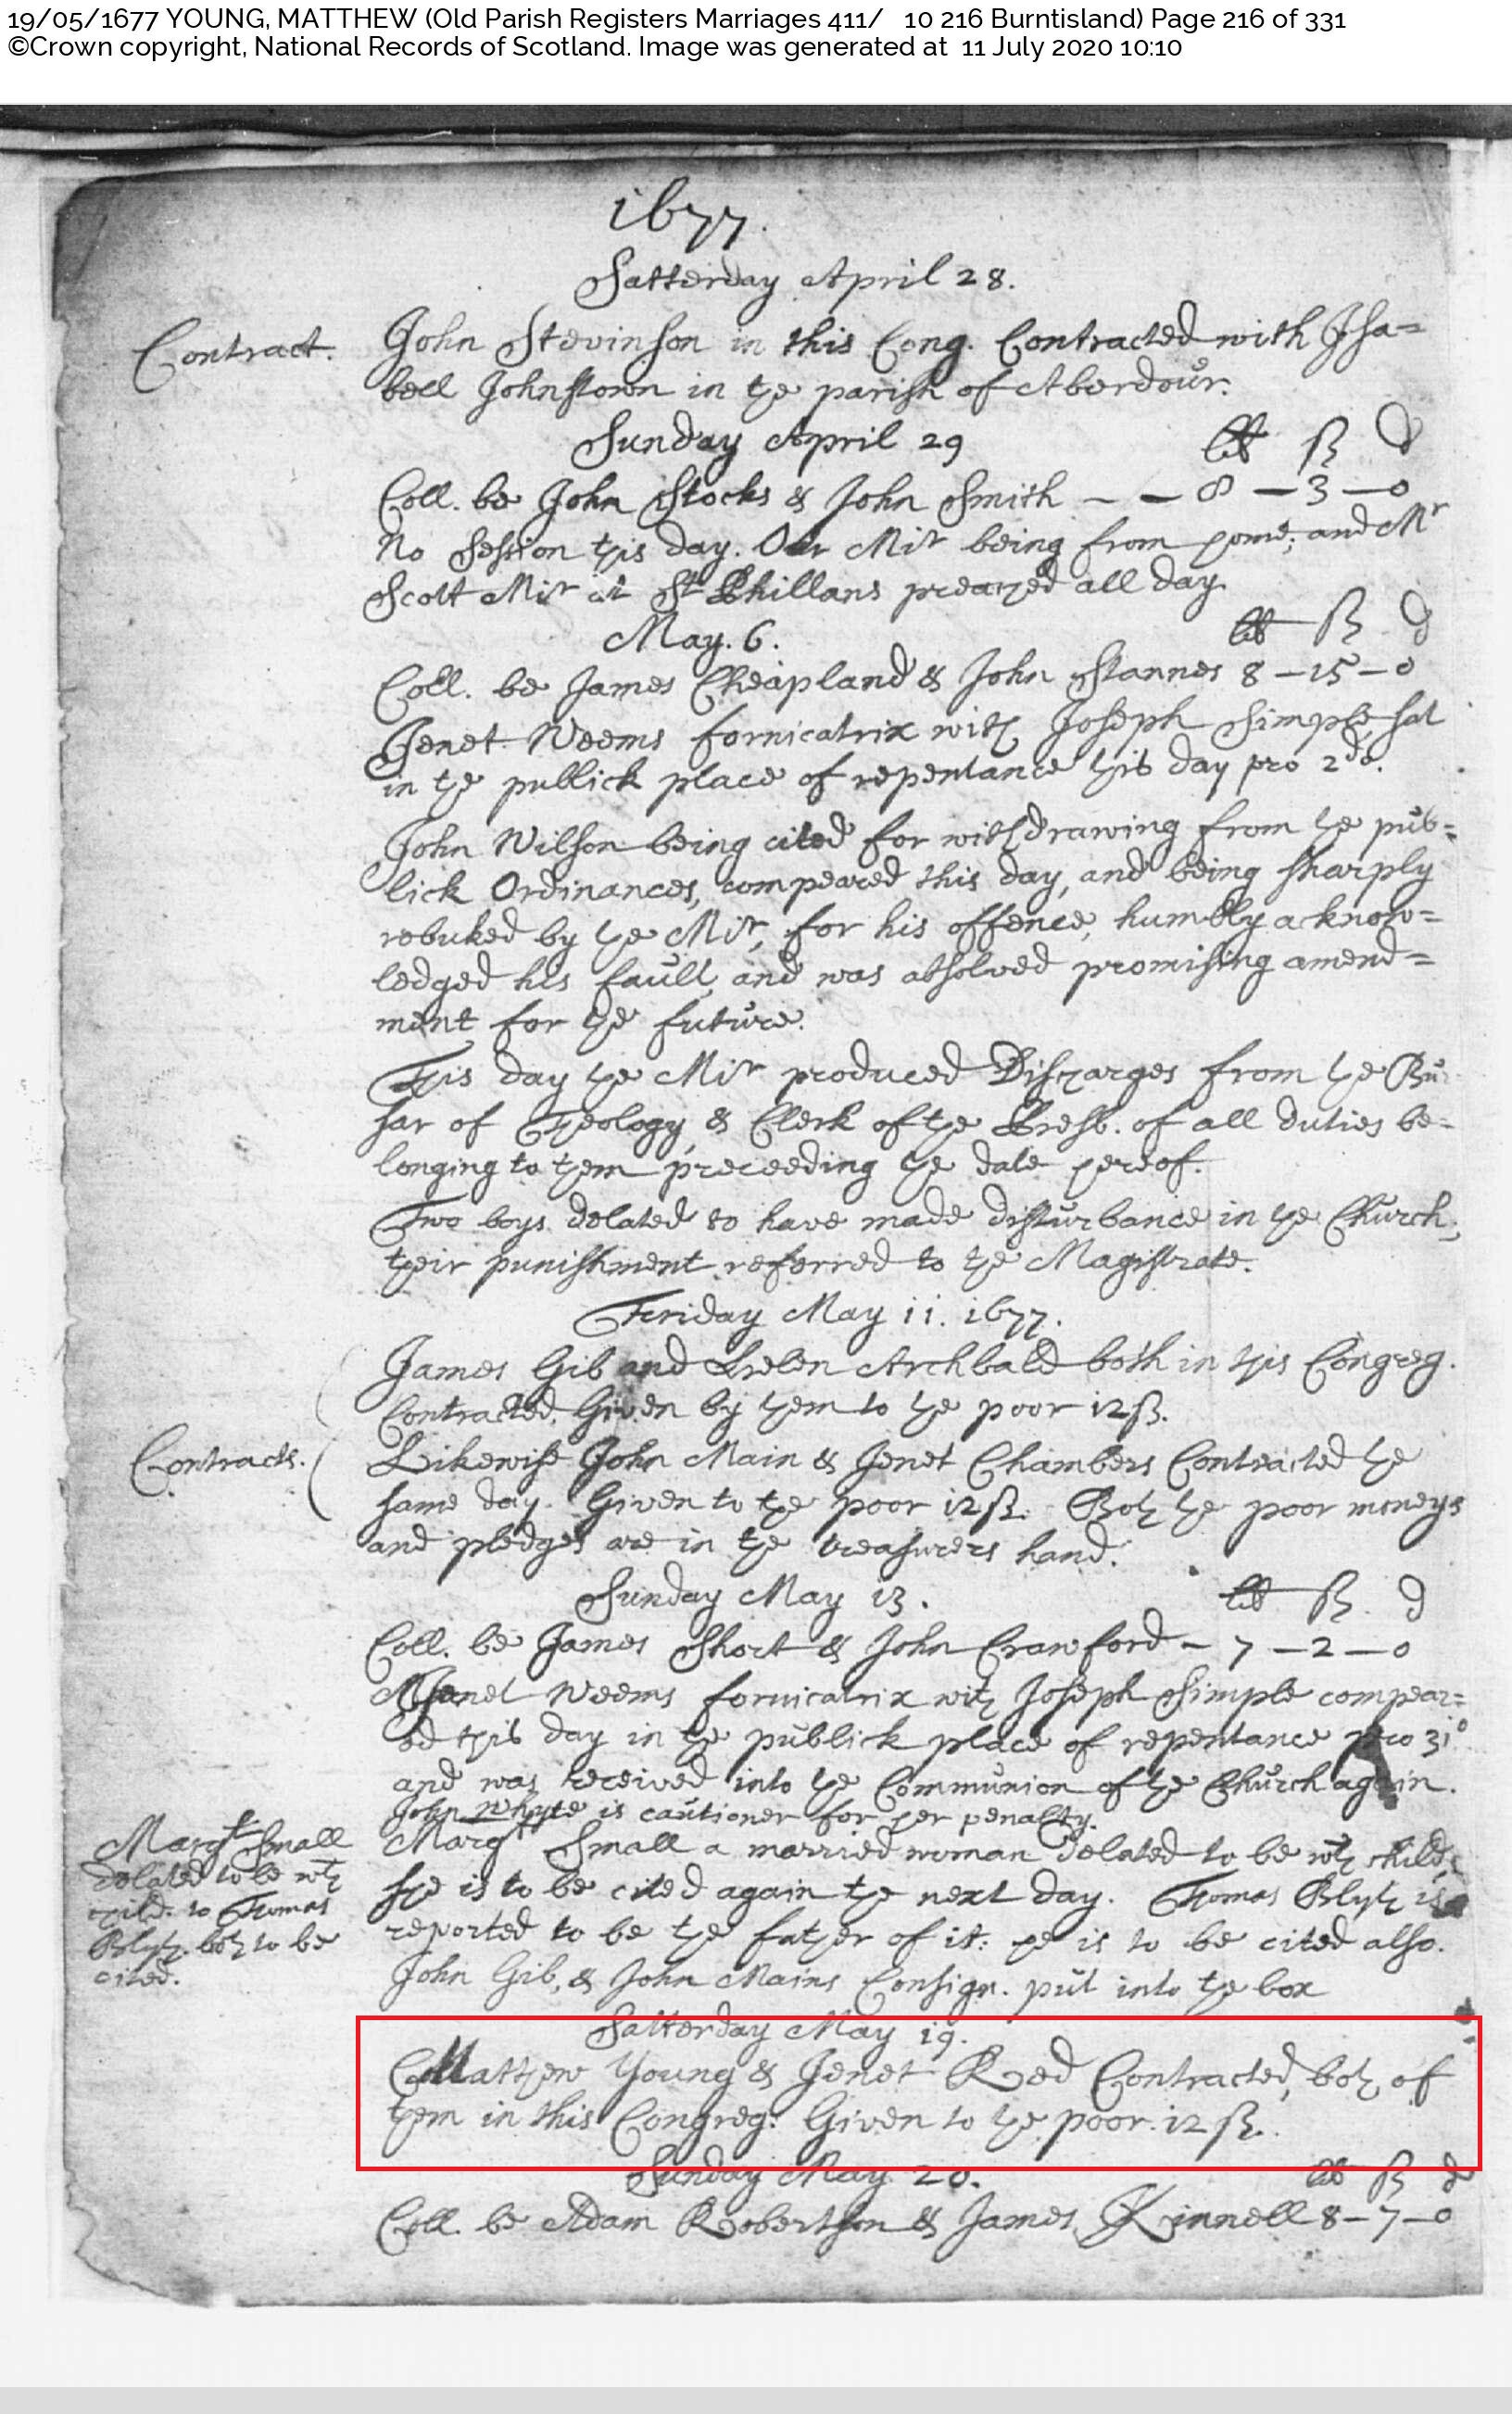 19/05/1677 YOUNG, MATTHEW (Old Parish Registers Marriages 411/ 10 216 Burntisland) Page 216 of 331
©Crown copyright, National Records of Scotland. Image was generated at 11 July 2020 10:10
1677.
Satterday April 28.
Contract. John Stevinson in this Cong. Contracted with Isa=
bell Johnstown in the parish of Aberdour.
Sunday April 29 lib ß d
Coll. be John Stocks & John Smith — — 8 — 3 — 0
No Session this day. Our Mir being from home; and Mr
Scott Mir at St Phillans preached all day
May. 6. lib ß d
Coll. be James Cheapland & John Stannes 8 — 15 — 0
Jenet Weems fornicatrix with Joseph Simple sat
in the publick place of repentance this day pro 2do.
John Wilson being cited for withdrawing from the pub=
lick Ordinances, compeared this day, and being sharply
rebuked by the Mir, for his offence, humbly acknow=
ledged his fault, and was absolved promising amend=
ment for the future.
This day the Mir produced Discharges from the Bur
sar of Theology, & Clerk of the Presb. of all duties be=
longing to them preceeding the date hereof.
Two boys delated to have made disturbance in the Church;
their punishment referred to the Magistrate.
Friday May 11. 1677.
James Gib and Helen Archbald both in this Congreg.
Contracted. Given by them to the poor 12 ß.
Contracts. Likewise John Main & Jenet Chambers Contracted the
same day. Given to the poor 12 ß. Both the poor moneys
and pledges are in the treasurers hand.
Sunday May 13. lib ß. d
Coll. be James Short & John Crawford — 7 — 2 — 0
Jenet Weems fornicatrix with Joseph Simple compear=
ed this day in the publick place of repentance pro 3io
and was received into the Communion of the Church again.
John Whyte is cautioner for her penalty.
Margt Small a married woman delated to be wth child,
she is to be cited again the next day. Thomas Blyth is
reported to be the father of it: he is to be cited also.
Margt Small
delated to be wth
child. to Thomas
Blyth. both to be
cited.
John Gib, & John Mains Consign. put into the box
Satterday May 19.
Matthew Young & Jenet Reed Contracted, both of
them in this Congreg: Given to the poor. 12 ß.
Sunday May. 20. lib ß d
Coll. be Adam Robertson & James Kinnell 8 — 7 — 0